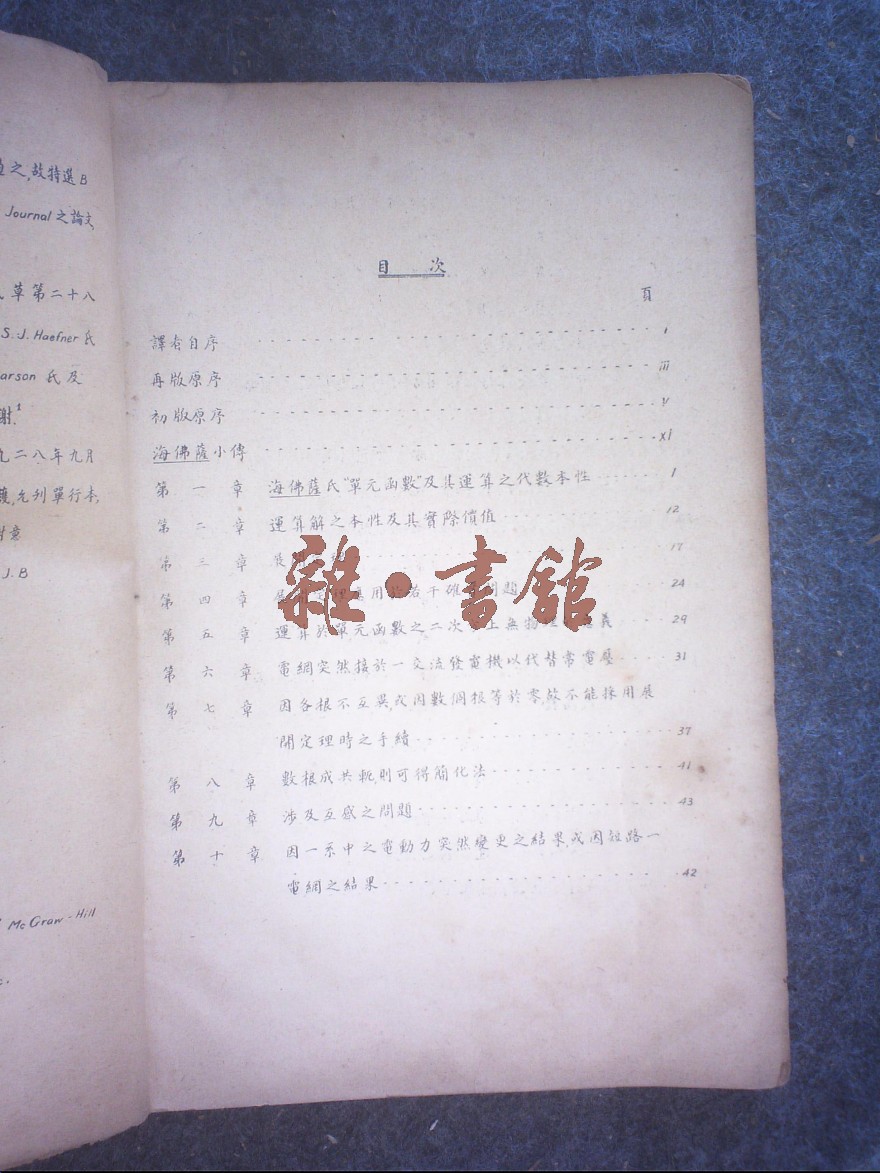 之,故特選B
Journal之論文,
草第二十八
S.J. Haefner氏
arson 氏及
謝.1
九二八年九月
允刋單行本,
J.B
McGraw-Hill
目 次
頁
譯者自序 i
再版原序 iii
初版原序 v
海佛薩小傳 xi
第一章 海佛薩氏"單元函數"及其運算之代數本性 1
第二章 運算解之本性及其實際價值 12
第三章 17
第四章 用 若干確 問題 24
第五章 運算於單元函數之二次 上無物 義 29
第六章 電網突然接於一交流發電機以代替常電壓 31
第七章 因各根不互異,或因數個根等於零,故不能採用展
開定理時之手續 37
第八章 數根成共軛,則可得簡化法 41
第九章 涉及互感之問題 43
第十章 因一系中之電動力突然變更之結果,或因短路一
電網之結果 42
雜·書館